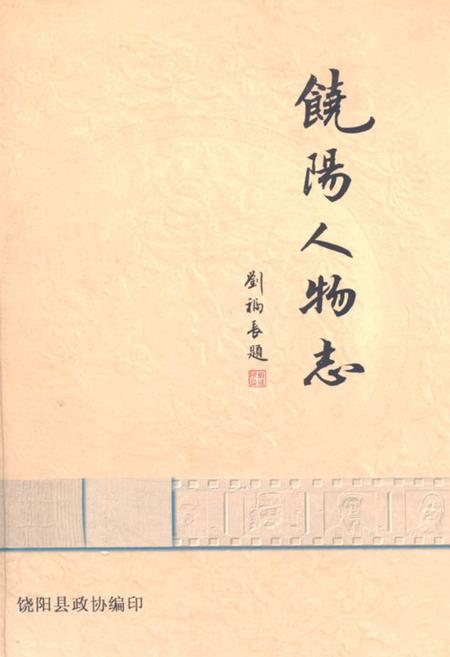 饒陽人物志
劉福長題
饶阳县政协编印